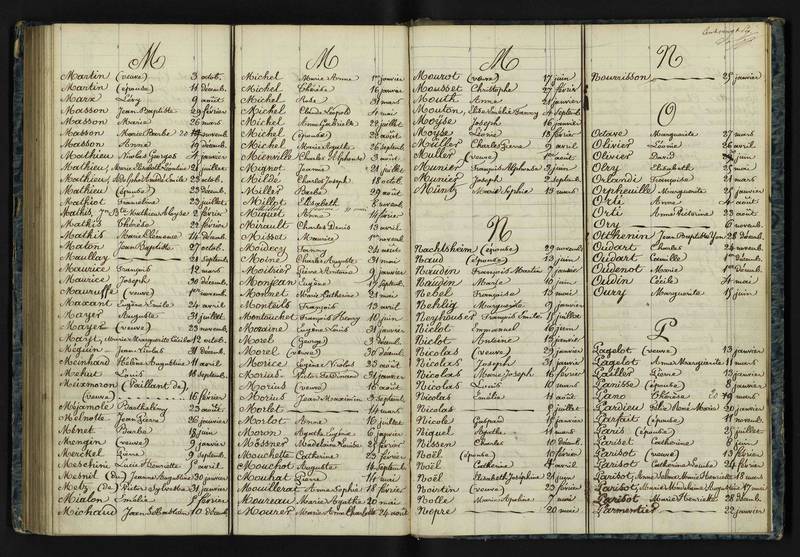 M
Martin (veuve) 3 octob.
Martin (épouse) 11 décemb.
Marx Lévy 9 août
Masson Jean Baptiste 29 février
Masson Marie 26 mars
Masson Marie Barbe 20 novemb.
Masson Anne 19 décemb.
Mathieu Nicolas Georges 4 janvier
Mathieu Marie Elisabeth 21 juillet
Mathieu 25 décemb.
Mathieu (épouse) 23 décemb.
Mathiot Franceline 23 juillet
Mathis 2 février
Mathis Thérèse 22 février
Mathis Marie Clémence 14 décemb.
Maton Jean Baptiste 27 octob.
Maullay 21 septemb.
Maurice François 12 mars
Maurice Joseph 30 décemb.
Mauruffe (veuve) 1er novemb.
Maxant Eugène Emile 24 avril
Mayer Auguste 31 juillet
Mayer (veuve) 23 novemb.
Mayr Marie Marguerite 12 octob.
Méguin Jean Louis 31 décemb.
Meinhard Hélène Augustine 11 avril
Mehut Louis 18 septemb.
Meixmoron (Vaillant de)
(veuve) 16 février
Méjamole Barthélémy 23 août
Melnotte Jean Pierre 26 janvier
Menet Paul 18 juin
Mengin (veuve) 9 janvier
Merckel Pierre 9 septemb.
Meschine Lucie Henriette 5 avril
Mesnil (Du) Jeanne Augustine 30 janvier
Metz (De) Victor Sylvestre 31 janvier
Mialon Emélie 7 février
Michaud Jean Sébastien 10 décemb.
M
Michel Marie Anne 1er janvier
Michel Thérèse 16 janvier
Michel Rose 31 mars
Michel Claude Léopold 4 mai
Michel Anne Gabrielle 22 juillet
Michel (épouse) 22 août
Michel Marie Rosette 26 septemb.
Mienville Charles Alphonse 3 août
Mignot Jeanne 28 juillet
Milde Charles Joseph 18 octob.
Miller Barbe 29 mai
Millot Elisabeth 8 novemb.
Miquet Anne 14 février
Mirault Charles Denis 13 avril
Misset Maurice 1er novemb.
Modecy Fanny 24 août
Moine Charles Auguste 31 mai
Moitrier Pierre Antoine 9 janvier
Monjean Eugène 17 septemb.
Monnet Marie Catherine 21 mai
Monteils François 13 avril
Montouchet François Henry 10 juin
Moraine Eugène Louis 31 janvier
Morel (George) 3 décemb.
Morel (veuve) 30 décemb.
Morice Eugène Nicolas 25 août
Morius Victor Ferdinand 21 janvier
Morius (veuve) 16 août
Morius Jean Maximin 3 septemb.
Morlet 14 mars
Morlot Anne 16 juillet
Moron Agathe Eugénie 6 janvier
Mossner Madeleine Louise 27 février
Mouchette Catherine 23 février
Mouchot Auguste 14 septemb.
Mouhat Pierre 14 mai
Mouillerat Anne Sophie 18 février
Moureau Marie Agathe 20 mai
Mourer Marie Anne Charlotte 24 août
M
Mourot (veuve) 17 juin
Mousset Christophe 27 février
Mouth Anne 21 janvier
Mouton Elisabeth Fanny 4 septemb.
Moyse Joseph 16 janvier
Moyse Léonie 13 février
Müller Charles Pierre 9 avril
Muller (veuve) 1er août
Munier François Alphonse 3 juin
Munier Joseph 2 septemb.
Müntz Marie Sophie 13 mars
N
Nachtsheim (épouse) 29 novemb.
Naud (épouse) 13 juin
Naudin François Martin 7 janvier
Naudin Marie 10 juin
Nebel François 13 mai
Nehlig Marguerite 31 janvier
Neyhauser François Emile 18 juillet
Niclot Emmanuel 16 juin
Niclot Antoine 13 janvier
Nicolas (veuve) 29 janvier
Nicolas Joseph 31 janvier
Nicolas Marie Joseph 16 février
Nicolas Louis 10 mars
Nicolas Emélie 11 août
Nicolas 8 juillet
Nicole Gaspard 17 janvier
Niquel Agathe 11 mars
Nissen Charles 10 décemb.
Noël (épouse) 10 février
Noël Catherine 4 avril
Noël Elisabeth Joséphine 21 juin
Noirtin (veuve) 23 février
Nolle Marie Apoline 7 mai
Nopre 20 mai
N
Nourrisson 25 janvier
O
Octave Marguerite 27 mars
Olivier Léonie 26 avril
Olivier David juin
Olry Elisabeth 25 mai
Orlandi François 18 mars
Orpheuille Marguerite 25 janvier
Orti Anne 4 août
Orti Anne Victorine 23 août
Ory 6 novemb.
Ottchenin Jean Baptiste 28 décemb.
Oudart Charles 24 novemb.
Oudart Camille 1er décemb.
Oudenot Marie 1er décemb.
Oudin Cécile 4 mai
Oury Marguerite 15 juin
P
Pagelot (veuve) 13 janvier
Pagelot Anne Marguerite 11 mars
Pailler Pierre 13 janvier
Panisse (épouse) 8 janvier
Pano Thérèse 20 19 mars
Pardieu Félix Marie 20 janvier
Parfait (épouse) 11 novemb.
Paris (épouse) 25 juillet
Pariset Catherine 8 juin
Parisot (veuve) 13 février
Parisot Catherine Louise 24 février
Parisot Marie Henriette 18 mars
Parisot 17 mai
Parisot Marie Henriette 28 décemb.
Parmentier 22 janvier